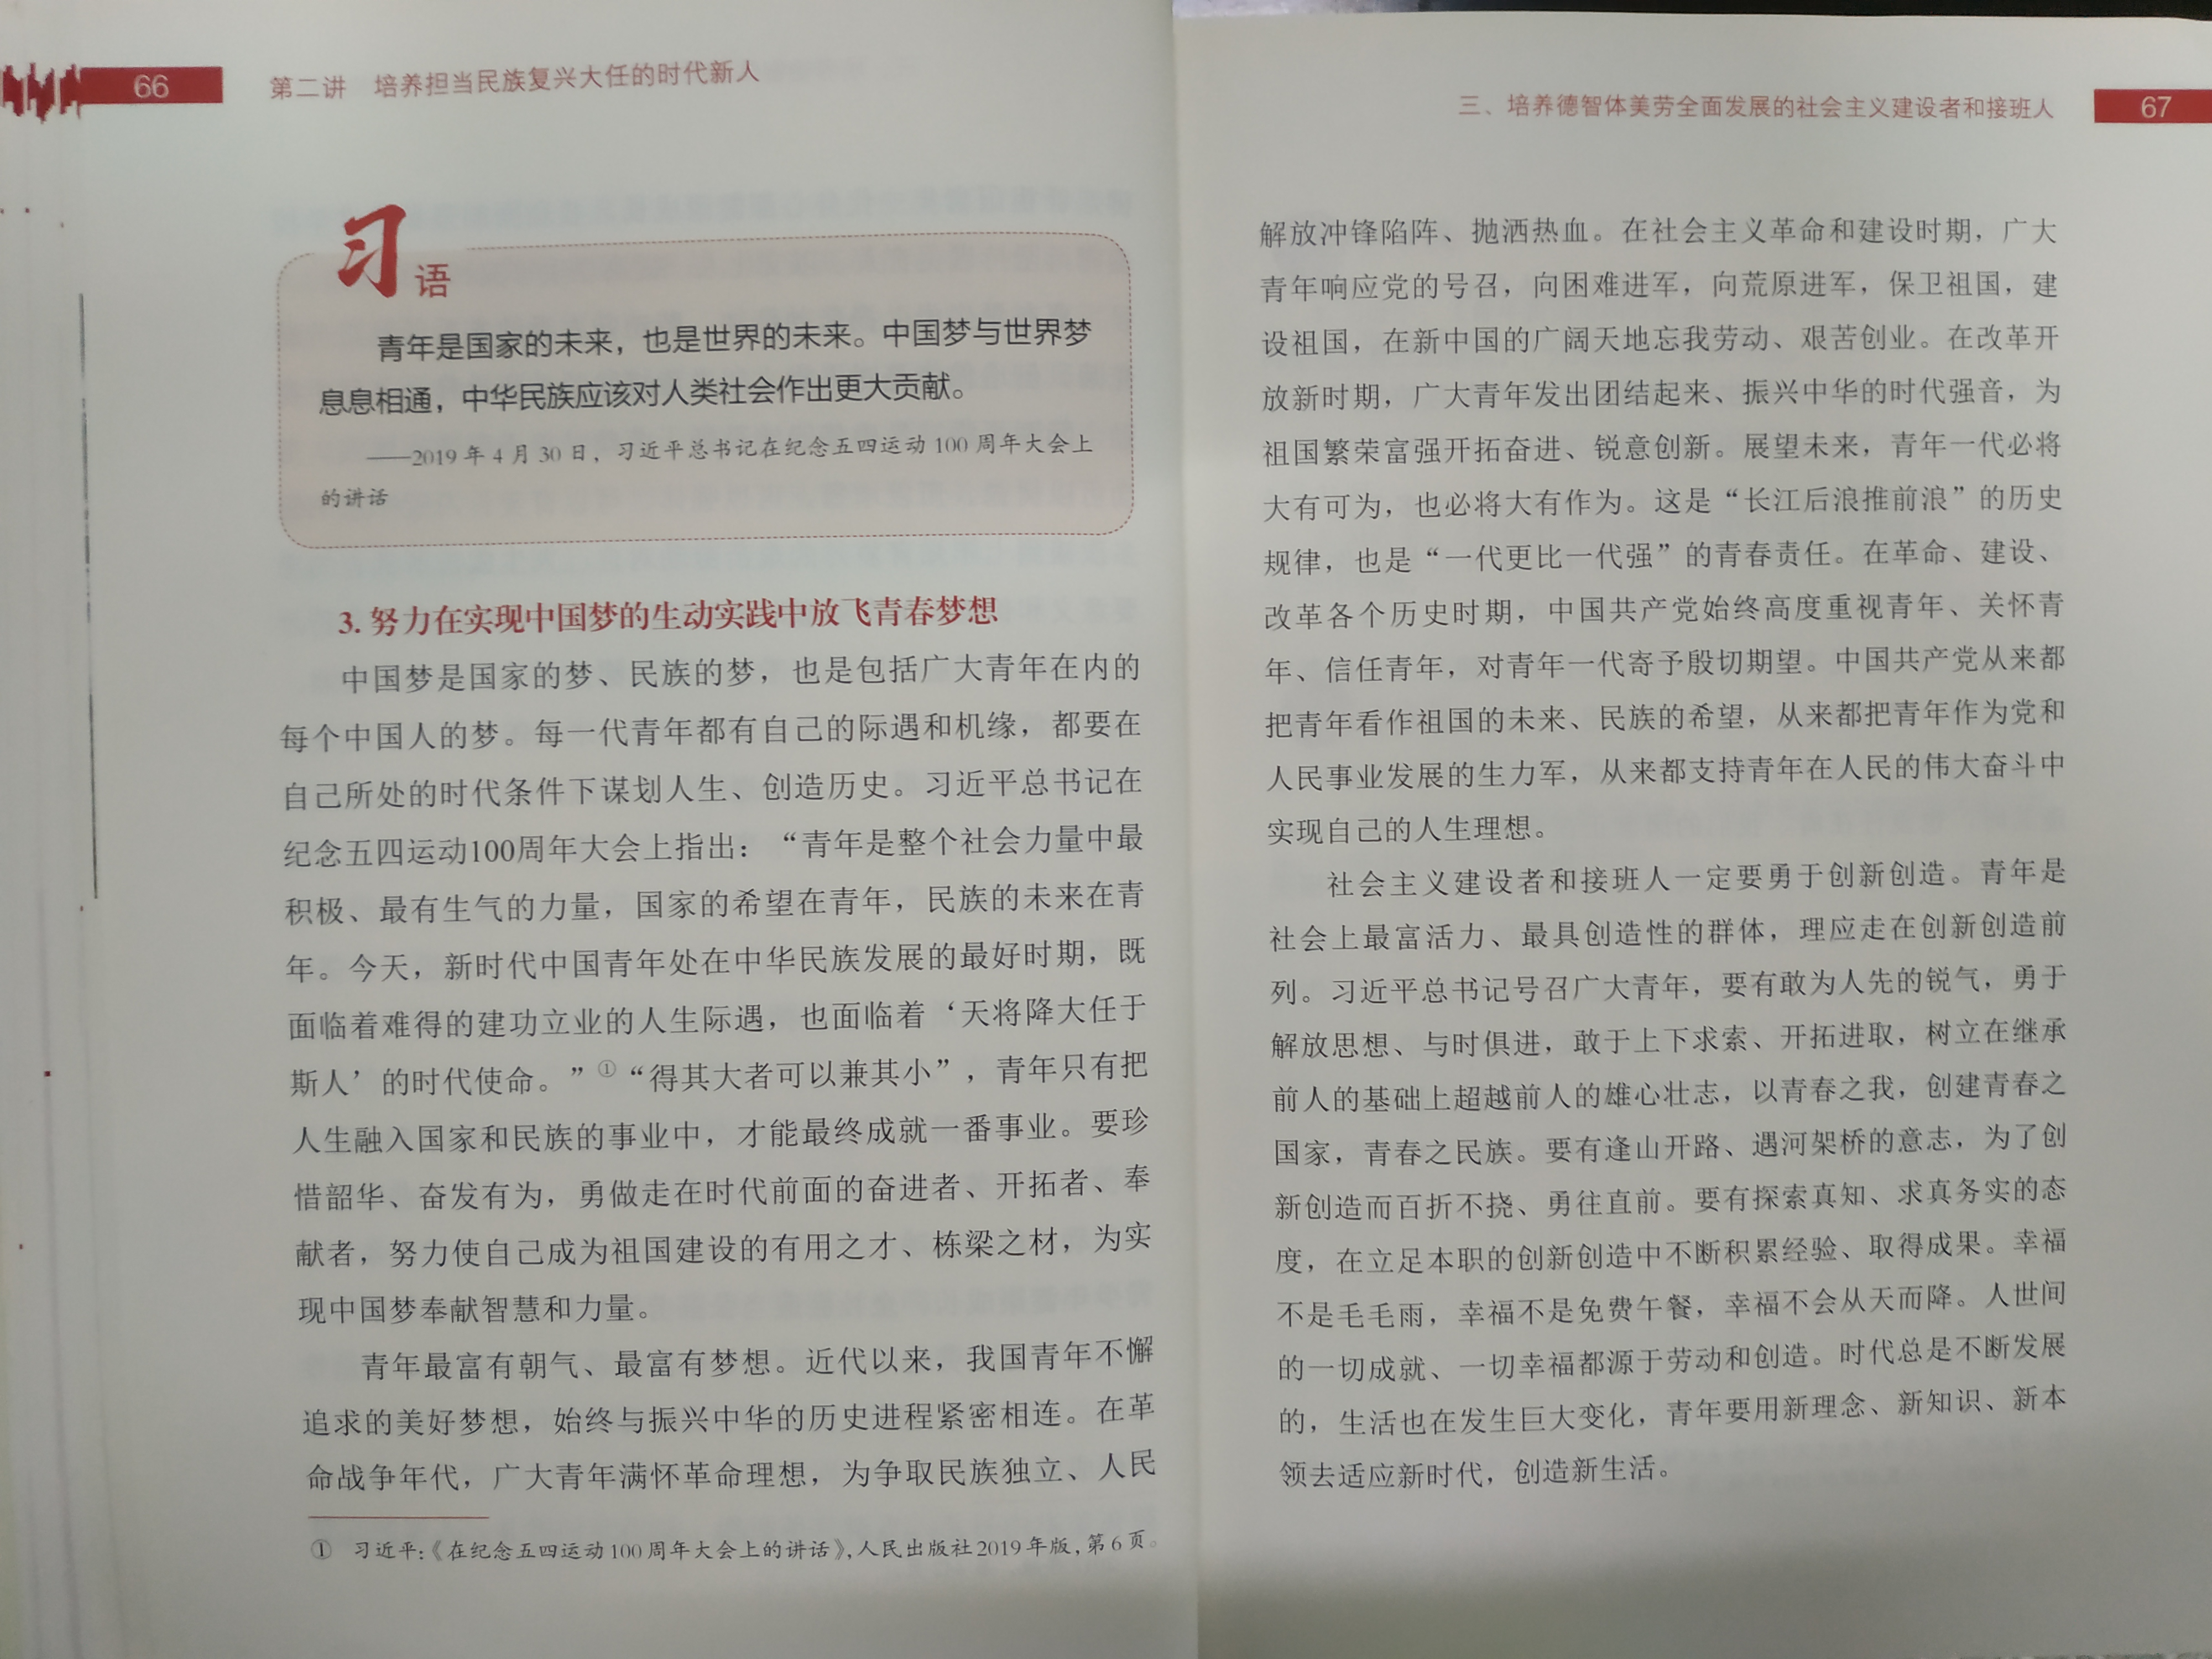 66
第二讲　培养担当民族复兴大任的时代新人
习语
青年是国家的未来，也是世界的未来。中国梦与世界梦
息息相通，中华民族应该对人类社会作出更大贡献。
——2019年4月30日，习近平总书记在纪念五四运动100周年大会上
的讲话
3. 努力在实现中国梦的生动实践中放飞青春梦想
中国梦是国家的梦、民族的梦，也是包括广大青年在内的
每个中国人的梦。每一代青年都有自己的际遇和机缘，都要在
自己所处的时代条件下谋划人生、创造历史。习近平总书记在
纪念五四运动100周年大会上指出：“青年是整个社会力量中最
积极、最有生气的力量，国家的希望在青年，民族的未来在青
年。今天，新时代中国青年处在中华民族发展的最好时期，既
面临着难得的建功立业的人生际遇，也面临着‘天将降大任于
斯人’的时代使命。”①“得其大者可以兼其小”，青年只有把
人生融入国家和民族的事业中，才能最终成就一番事业。要珍
惜韶华、奋发有为，勇做走在时代前面的奋进者、开拓者、奉
献者，努力使自己成为祖国建设的有用之才、栋梁之材，为实
现中国梦奉献智慧和力量。
青年最富有朝气、最富有梦想。近代以来，我国青年不懈
追求的美好梦想，始终与振兴中华的历史进程紧密相连。在革
命战争年代，广大青年满怀革命理想，为争取民族独立、人民
①　习近平：《在纪念五四运动100周年大会上的讲话》，人民出版社2019年版，第6页。
三、培养德智体美劳全面发展的社会主义建设者和接班人
67
解放冲锋陷阵、抛洒热血。在社会主义革命和建设时期，广大
青年响应党的号召，向困难进军，向荒原进军，保卫祖国，建
设祖国，在新中国的广阔天地忘我劳动、艰苦创业。在改革开
放新时期，广大青年发出团结起来、振兴中华的时代强音，为
祖国繁荣富强开拓奋进、锐意创新。展望未来，青年一代必将
大有可为，也必将大有作为。这是“长江后浪推前浪”的历史
规律，也是“一代更比一代强”的青春责任。在革命、建设、
改革各个历史时期，中国共产党始终高度重视青年、关怀青
年、信任青年，对青年一代寄予殷切期望。中国共产党从来都
把青年看作祖国的未来、民族的希望，从来都把青年作为党和
人民事业发展的生力军，从来都支持青年在人民的伟大奋斗中
实现自己的人生理想。
社会主义建设者和接班人一定要勇于创新创造。青年是
社会上最富活力、最具创造性的群体，理应走在创新创造前
列。习近平总书记号召广大青年，要有敢为人先的锐气，勇于
解放思想、与时俱进，敢于上下求索、开拓进取，树立在继承
前人的基础上超越前人的雄心壮志，以青春之我，创建青春之
国家，青春之民族。要有逢山开路、遇河架桥的意志，为了创
新创造而百折不挠、勇往直前。要有探索真知、求真务实的态
度，在立足本职的创新创造中不断积累经验、取得成果。幸福
不是毛毛雨，幸福不是免费午餐，幸福不会从天而降。人世间
的一切成就、一切幸福都源于劳动和创造。时代总是不断发展
的，生活也在发生巨大变化，青年要用新理念、新知识、新本
领去适应新时代，创造新生活。